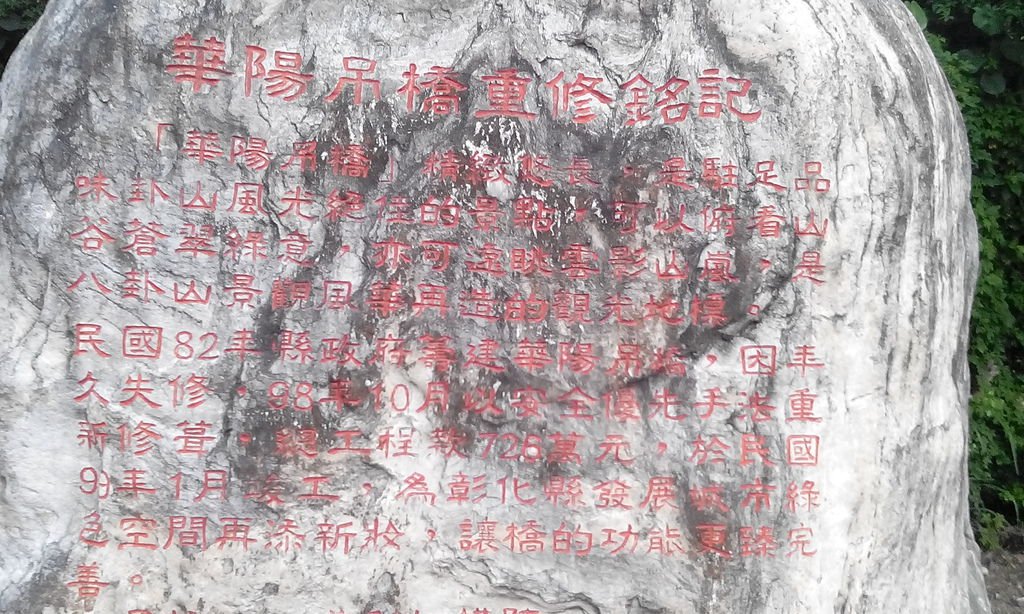 華陽吊橋重修銘記
「華陽吊橋」精緻悠長，是駐足品
味卦山風光絕佳的景點，可以俯看山
谷蒼翠綠意，亦可遠眺雲影山嵐，是
八卦山景觀風華再造的觀光地標。
民國82年縣政府籌建華陽吊橋，因年
久失修，98年10月以安全優先手法重
新修葺，總工程款726萬元，於民國
99年1月竣工，為彰化縣發展城市綠
色空間再添新妝，讓橋的功能更臻完
善。